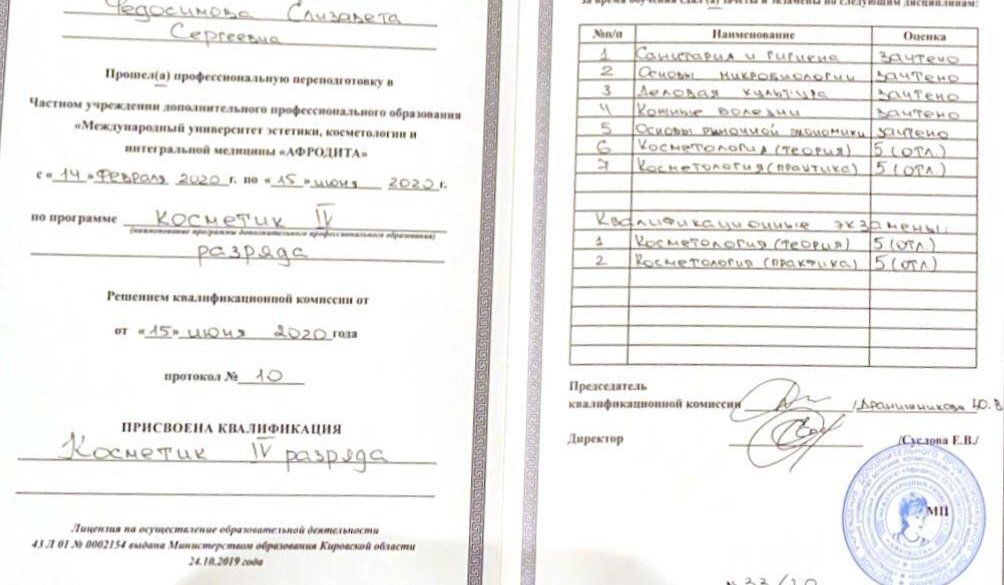 Федосимова Елизавета
Сергеевна
Прошел(а) профессиональную переподготовку в
Частном учреждении дополнительного профессионального образования
«Международный университет эстетики, косметологии и
интегральной медицины «АФРОДИТА»
с «14» Февраля 2020 г. по «15» июня 2020 г.
по программе Косметик IV
(наименование программы дополнительного профессионального образования)
разряда
Решением квалификационной комиссии от
от «15» июня 2020 года
протокол № 10
ПРИСВОЕНА КВАЛИФИКАЦИЯ
Косметик IV разряда
Лицензия на осуществление образовательной деятельности
43 Л 01 № 0002154 выдана Министерством образования Кировской области
24.10.2019 года
за время обучения сдал(а) зачеты и экзамены по следующим дисциплинам:
№п/п Наименование Оценка
1 Санитария и гигиена зачтено
2 Основы микробиологии зачтено
3 Деловая культура зачтено
4 Кожные болезни зачтено
5 Основы рыночной экономики зачтено
6 Косметология (теория) 5 (отл.)
7 Косметология (практика) 5 (отл.)
Квалификационные экзамены:
1 Косметология (теория) 5 (отл.)
2 Косметология (практика) 5 (отл.)
Председатель
квалификационной комиссии /Дранишникова Ю.В
Директор /Суслова Е.В./
МП
№ 33/20